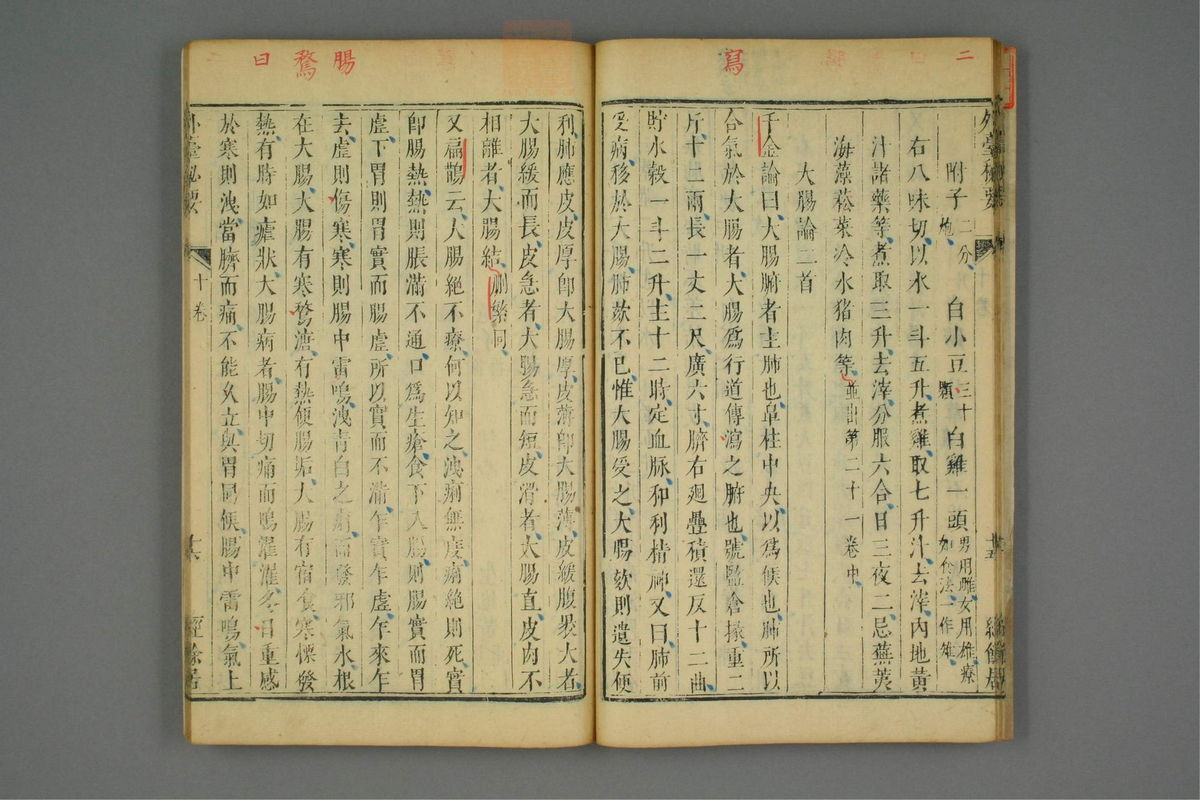 附子二分炮 白小豆三十顆 白雞一頭男用雌女用雄療如食法一作雉
右八味切以水一斗五升煮雞取七升汁去滓內地黃
汁諸藥等煮取三升去滓分服六合日三夜二忌蕪荑
海藻菘菜冷水猪肉等並出第二十一卷中
大腸論二首
千金論曰大腸腑者主肺也鼻柱中央以為候也肺所以
合氣於大腸者大腸為行道傳瀉之腑也號監倉掾重二
斤十二兩長一丈二尺廣六寸臍右廻疊積還反十二曲
貯水穀一斗二升主十二時定血脉和利精神又曰肺前
受病移於大腸肺欬不已惟大腸受之大腸欬則遺失便
利肺應皮皮厚即大腸厚皮薄即大腸薄皮緩腹裹大者
大腸緩而長皮急者大腸急而短皮滑者大腸直皮肉不
相離者大腸結刪繁同
又扁鵲云人腸絕不療何以知之洩痢無度痢絕則死實
即腸熱熱則脹滿不通口為生瘡食下入腸則腸實而胃
虛下胃則胃實而腸虛所以實而不滿乍實乍虛乍來乍
去虛則傷寒寒則腸中雷鳴洩青白之痢而發邪氣水根
在大腸大腸有寒鶩溏有熱便腸垢大腸有宿食寒慄發
熱有時如瘧狀大腸病者腸中切痛而鳴濯濯冬日重感
於寒則洩當臍而痛不能久立與胃同候腸中雷鳴氣上
外臺秘要
十卷
十五
經餘居
外臺秘要
十卷
十六
經餘居
二
寫
腸
鶩
曰